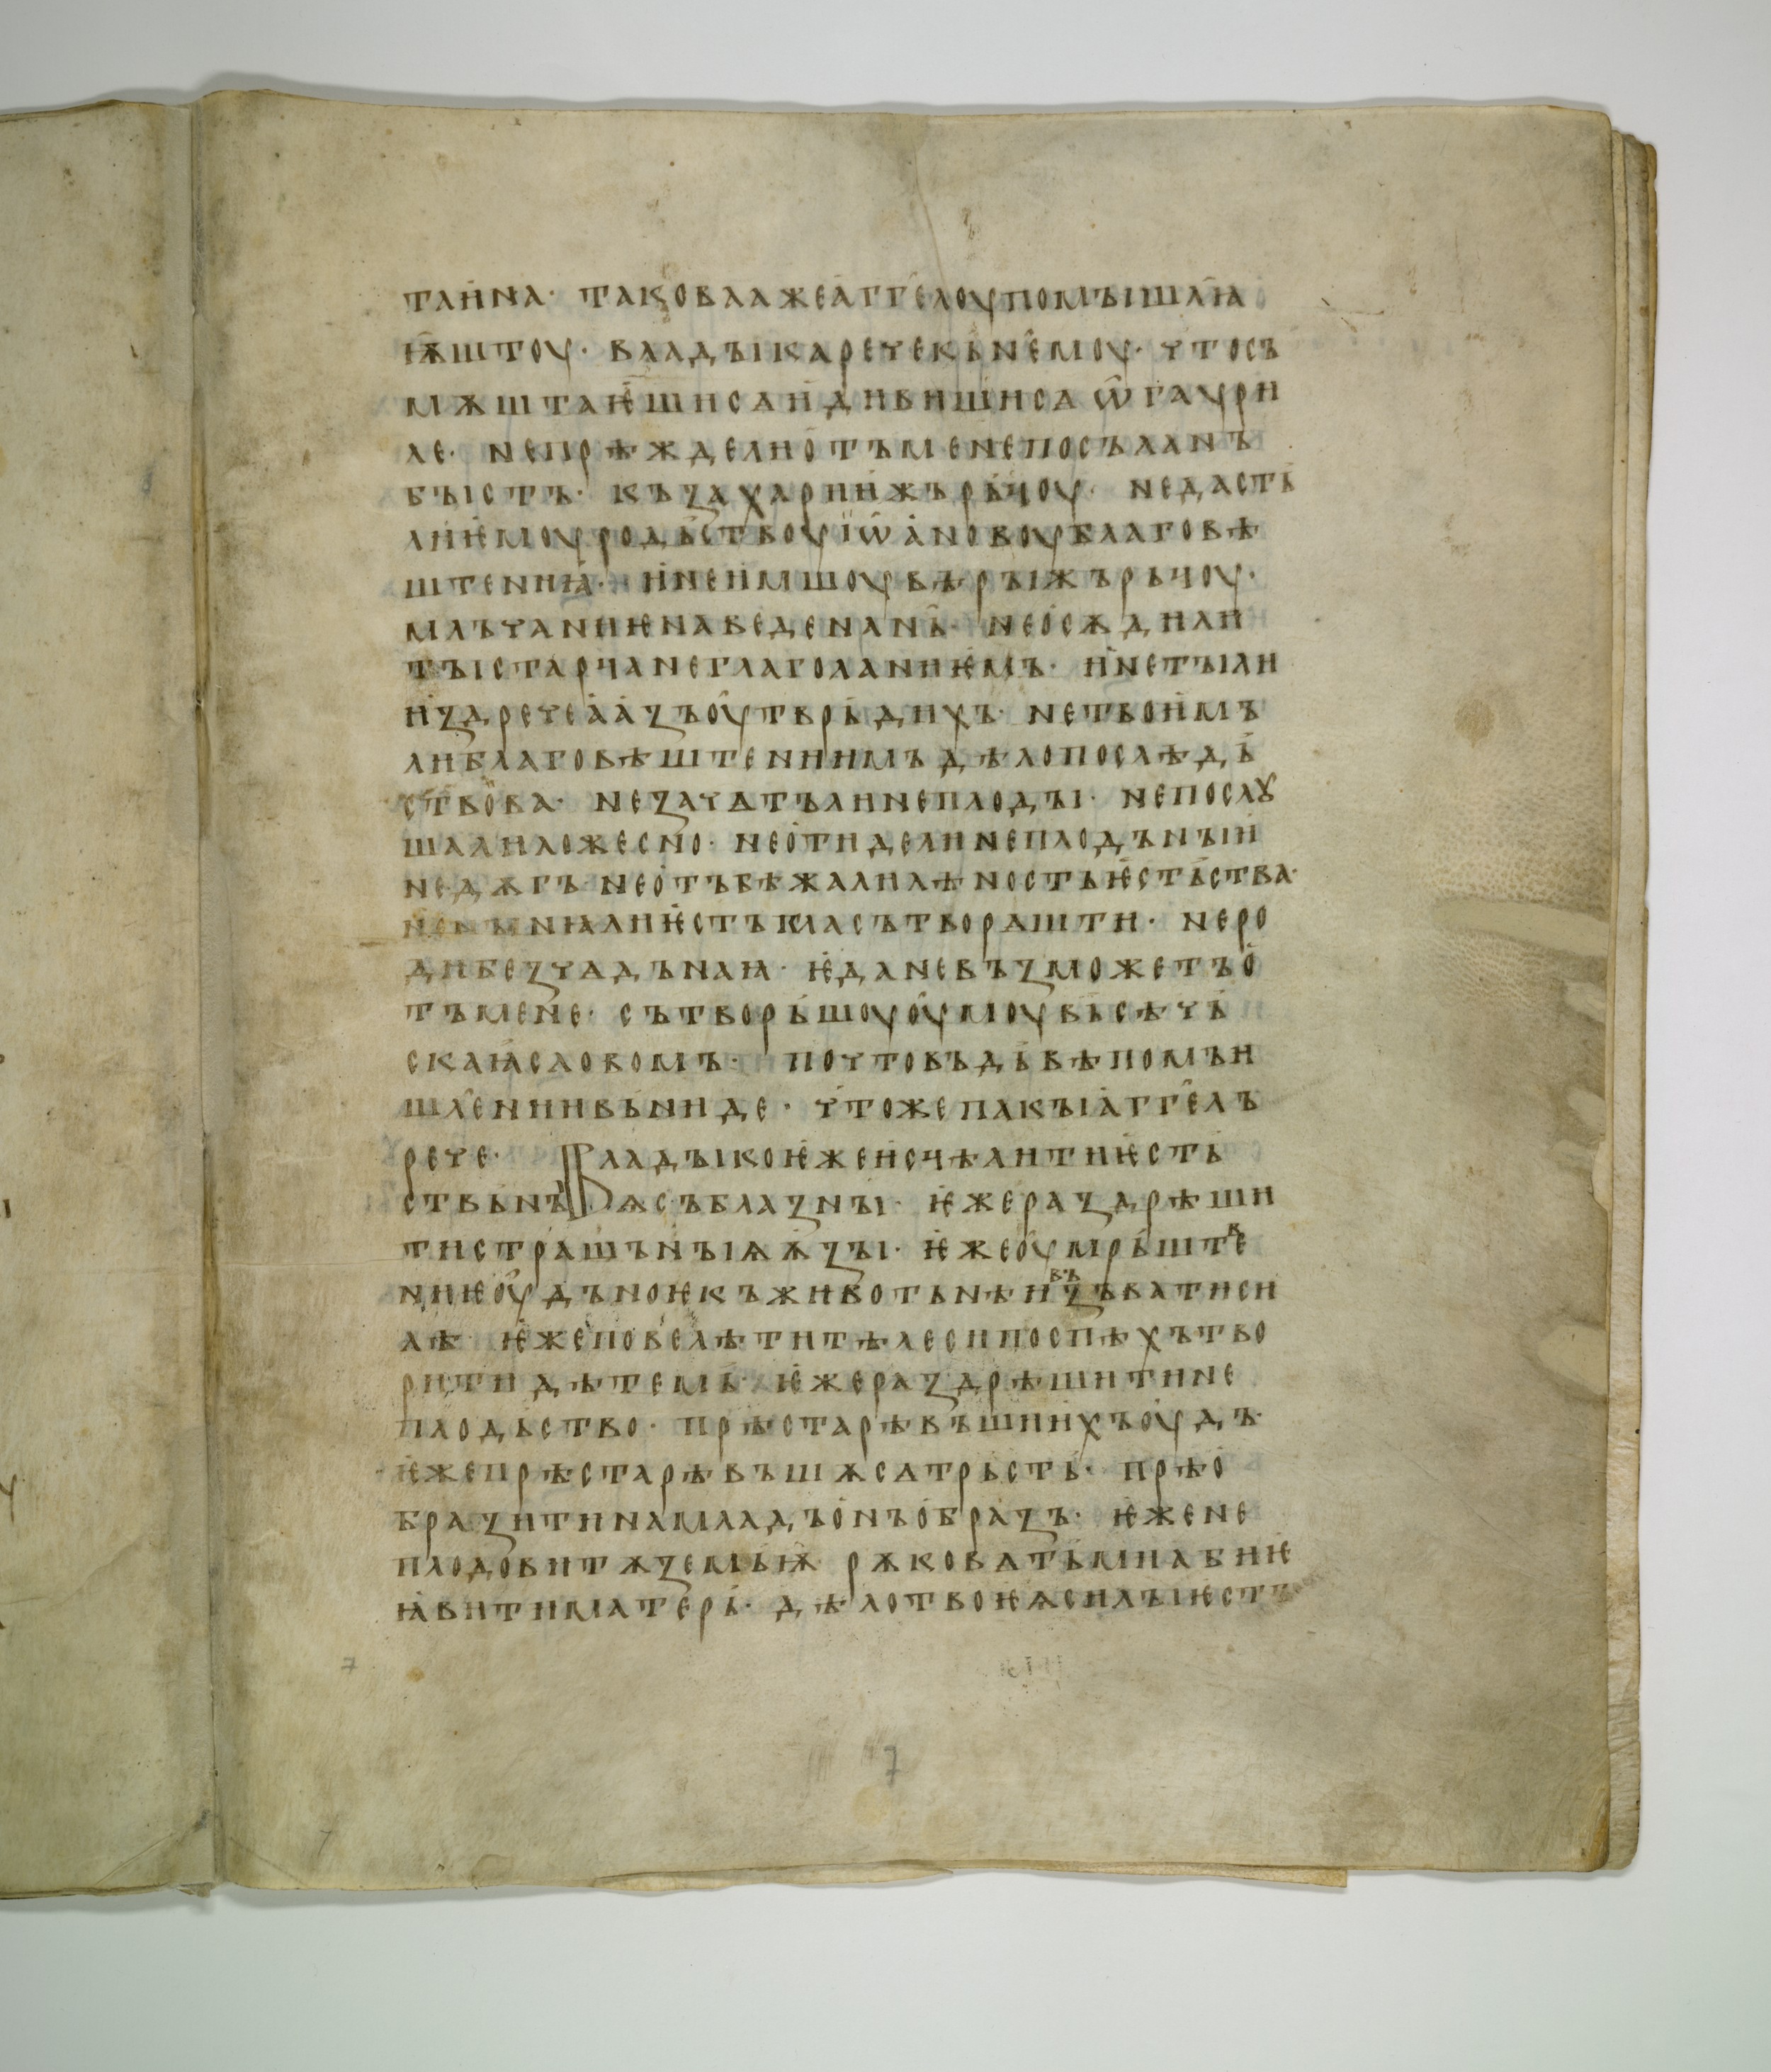 таина· таковаа же аггелоу помꙑшлꙗ
ѭштоу· владꙑка рече къ н҄емоу· что съ
мѫштаѥши сѧ и дивиши сѧ ѡ гаѵри
ле· не прѣжде ли отъ мене посъланъ
бꙑстъ· къ захарии жърьчоу· не дастъ
ли ѥмоу родьствоу іѡановоу благовѣ
штениꙗ· и не имшоу вѣрꙑ жърьчоу·
млъчаниѥ наведе на нь· не осѫди ли
тꙑ старча неглаголаниѥмъ· и не тꙑ ли
издрече а азъ оутврьдихъ· не твоимъ
ли благовѣштениимъ дѣло послѣдь
ствова· не зачѧтъ ли неплодꙑ· не послꙋ
ша ли ложесно· не отиде ли неплодънꙑи
недѫгъ· не отъбѣжа ли лѣность ѥстьства·
не вънꙗ ли ѥстъкла сътворѧшти· не ро
ди безчадънаꙗ· ѥда не възможетъ о
тъ мене· сътворьшоуоумоу вьсѣ чь
скаꙗ словомъ· по что въ дьвѣ помъи
шл҄ении вьниде· что же пакꙑ аггелъ
рече· Владꙑко ѥже исчѣлити ѥсть
ствьнъꙗѩ съблазнꙑ· ѥже раздрѣши
ти страшънꙑѩ ѩзꙑ· ѥже оумрьштв҄е
ниѥ оудъноѥ къ животьнѣи възъвати си
лѣ· ѥже повелѣти тѣлеси поспѣхъ тво
рити дѣтемь· ѥже раздрѣшити не
плодьство· прѣстарѣвъшиихъ оудъ·
ѥже прѣстарѣвъшѫ сѧ трьсть· прѣо
бразити на младъ онъ образъ· ѥже не
плодовитѫ землѭ· рѫковѧтьми абиѥ
ꙗвити матерь· дѣло твоѥѩ силꙑ ѥстъ
7
7
7